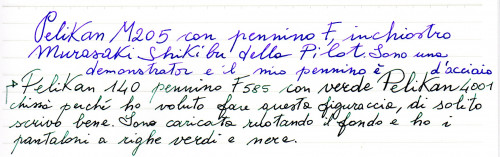 Pelikan M205 con pennino F, inchiostro
Murasaki Shikibu della Pilot. Sono una
demonstrator e il mio pennino è d'acciaio
→ Pelikan 140 pennino F585 con verde Pelikan 4001
chissà perché ho voluto fare questa figuraccia, di solito
scrivo bene. Sono caricata ruotando il fondo e ho i
pantaloni a righe verdi e nere.